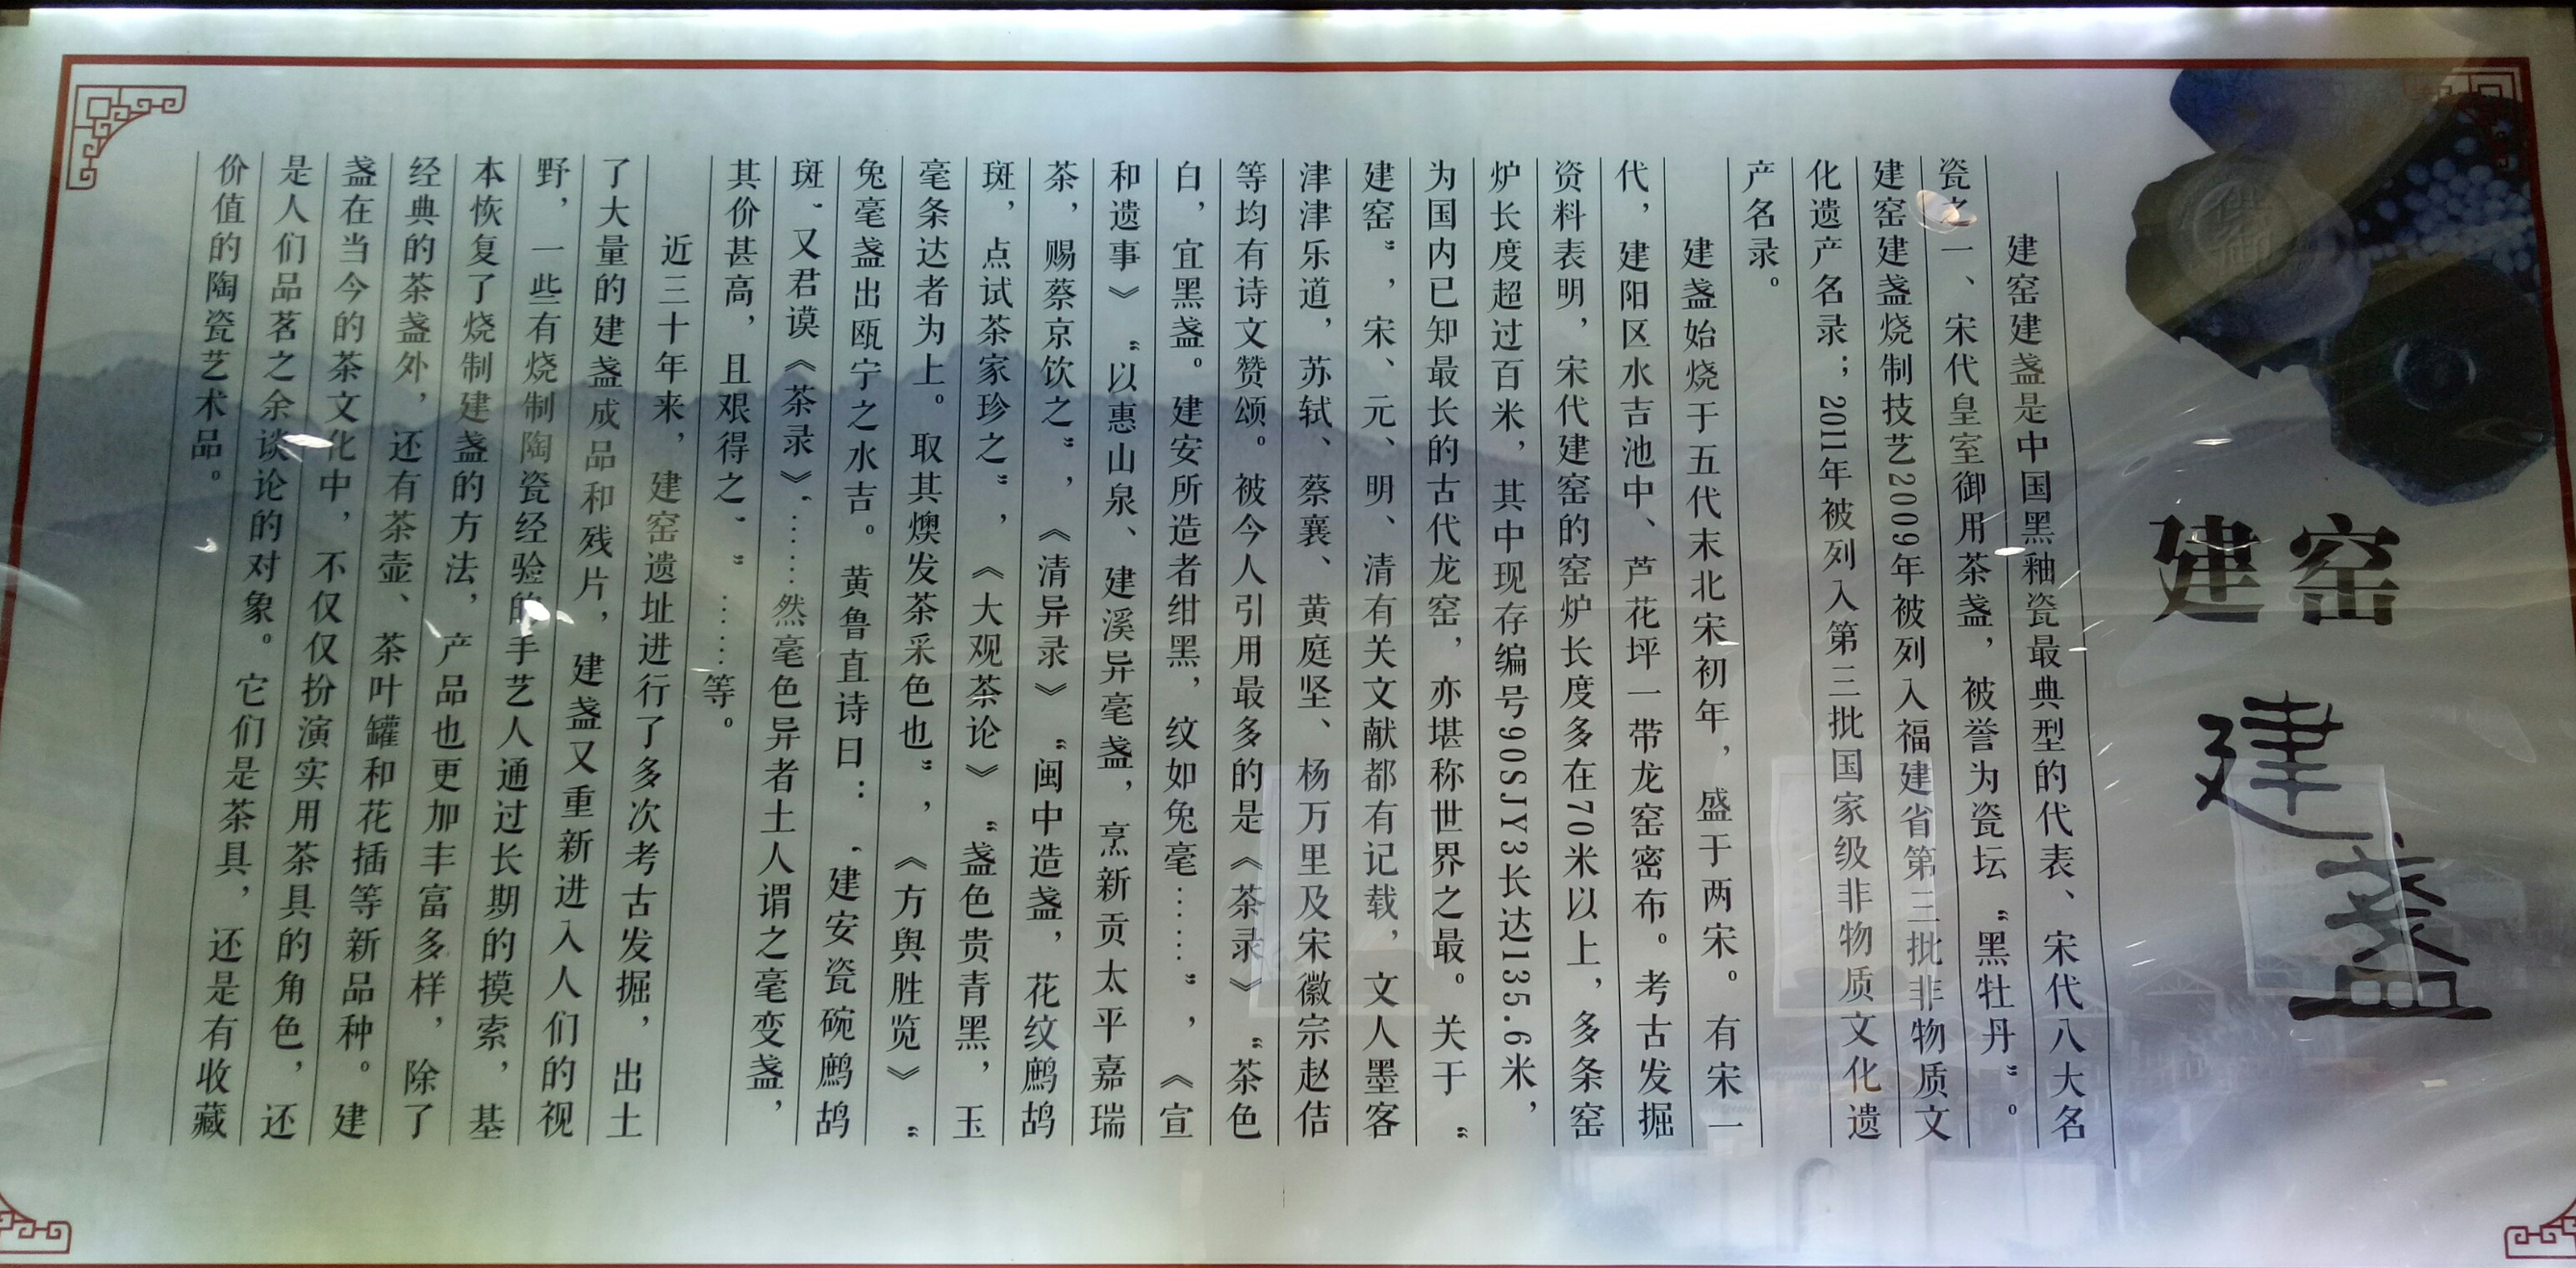 建窑
建盏
建窑建盏是中国黑釉瓷最典型的代表、宋代八大名
瓷之一、宋代皇室御用茶盏，被誉为瓷坛“黑牡丹”。
建窑建盏烧制技艺2009年被列入福建省第三批非物质文
化遗产名录；2011年被列入第三批国家级非物质文化遗
产名录。
建盏始烧于五代末北宋初年，盛于两宋。有宋一
代，建阳区水吉池中、芦花坪一带龙窑密布。考古发掘
资料表明，宋代建窑的窑炉长度多在70米以上，多条窑
炉长度超过百米，其中现存编号90SJY3长达135.6米，
为国内已知最长的古代龙窑，亦堪称世界之最。关于“
建窑”，宋、元、明、清有关文献都有记载，文人墨客
津津乐道，苏轼、蔡襄、黄庭坚、杨万里及宋徽宗赵佶
等均有诗文赞颂。被今人引用最多的是《茶录》“茶色
白，宜黑盏。建安所造者绀黑，纹如兔毫……”，《宣
和遗事》“以惠山泉、建溪异毫盏，烹新贡太平嘉瑞
茶，赐蔡京饮之”，《清异录》“闽中造盏，花纹鹧鸪
斑，点试茶家珍之”，《大观茶论》“盏色贵青黑，玉
毫条达者为上。取其燠发茶采色也”，《方舆胜览》“
兔毫盏出瓯宁之水吉。黄鲁直诗曰：‘建安瓷碗鹧鸪
斑’又君谟《茶录》‘……然毫色异者土人谓之毫变盏，
其价甚高，且艰得之’”……等。
近三十年来，建窑遗址进行了多次考古发掘，出土
了大量的建盏成品和残片，建盏又重新进入人们的视
野，一些有烧制陶瓷经验的手艺人通过长期的摸索，基
本恢复了烧制建盏的方法，产品也更加丰富多样，除了
经典的茶盏外，还有茶壶、茶叶罐和花插等新品种。建
盏在当今的茶文化中，不仅仅扮演实用茶具的角色，还
是人们品茗之余谈论的对象。它们是茶具，还是有收藏
价值的陶瓷艺术品。